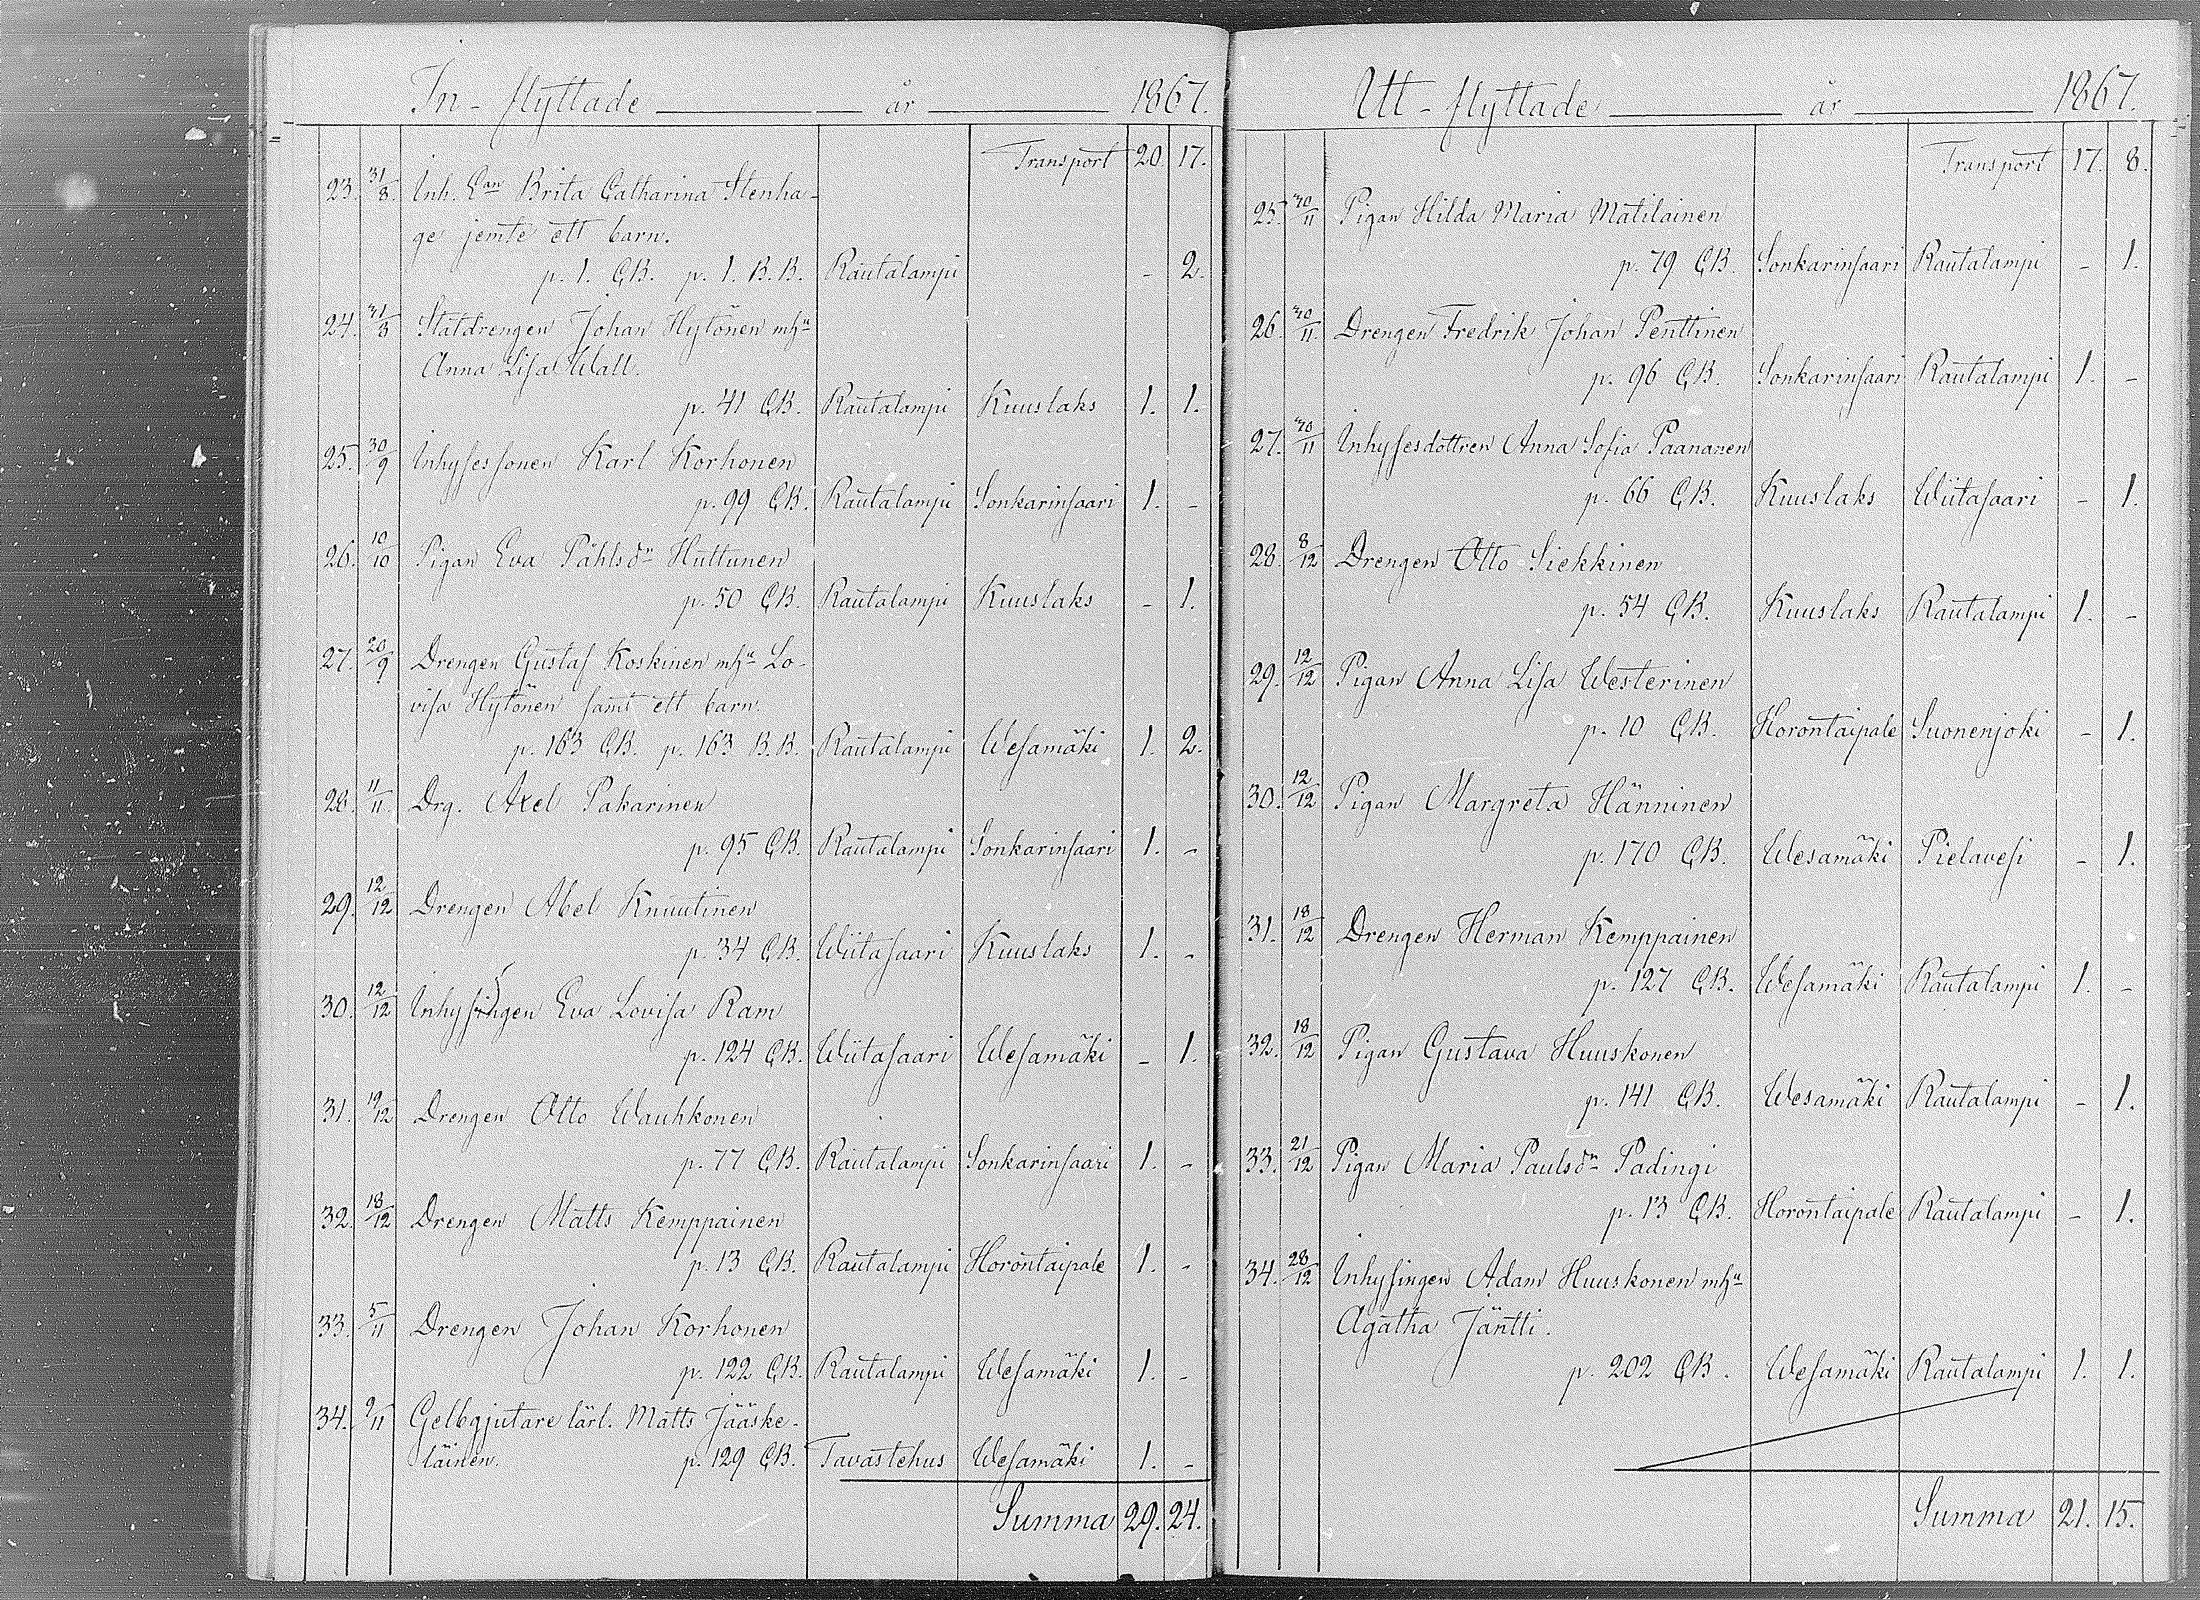 In-flyttade år 1867.
Transport 20. 17.
23. 31/8. Inh. Ean Brita Catharina Stenha-
ge jemte ett barn.
p. 1. CB. p. 1. B.B. Rautalampi - 2.
24. 31/8 Statdrengen Johan Hytönen mhu
Anna Lisa Wall.
p. 41 CB. Rautalampi Kuuslaks 1. 1.
25. 30/9 Inhysessonen Karl Korhonen
p. 99 CB. Rautalampi Sonkarinsaari 1. -
26. 10/10 Pigan Eva Påhlsdr Huttunen
p. 50 CB. Rautalampi Kuuslaks - 1.
27. 20/9 Drengen Gustaf Koskinen mhu Lo-
visa Hytönen samt ett barn.
p. 163 CB. p. 163 B.B. Rautalampi Wesamäki 1. 2.
28. 11/11. Drg. Axel Pakarinen
p. 95 CB. Rautalampi Sonkarinsaari 1. -
29. 12/12 Drengen Abel Knuutinen
p. 34 CB. Wiitasaari Kuuslaks 1. -
30. 12/12 Inhysingen Eva Lovisa Ram
p. 124 CB. Wiitasaari Wesamäki - 1.
31. 19/12 Drengen Otto Wauhkonen
p. 77 CB. Rautalampi Sonkarinsaari 1. -
32. 18/12 Drengen Matts Kemppainen
p. 13 CB. Rautalampi Horontaipale 1. -
33. 5/11 Drengen Johan Korhonen
p. 122 CB. Rautalampi Wesamäki 1. -
34. 9/11 Gelbgjutare lärl. Matts Jääske-
läinen. p. 129 CB. Tavastehus Wesamäki 1. -
Summa 29. 24.
Utt-flyttade år 1867.
Transport 17. 8.
25. 30/11 Pigan Hilda Maria Matilainen
p. 79 CB. Sonkarinsaari Rautalampi - 1.
26. 30/11. Drengen Fredrik Johan Penttinen
p. 96 CB. Sonkarinsaari Rautalampi 1. -
27. 30/11 Inhysesdottren Anna Sofia Paananen
p. 66 CB. Kuuslaks Wiitasaari - 1.
28. 8/12 Drengen Otto Siekkinen
p. 54 CB. Kuuslaks Rautalampi 1. -
29. 12/12 Pigan Anna Lisa Westerinen
p. 10 CB. Horontaipale Suonenjoki - 1.
30. 12/12 Pigan Margreta Hänninen
p. 170 CB. Wesamäki Pielavesi - 1.
31. 18/12 Drengen Herman Kemppainen
p. 127 CB. Wesamäki Rautalampi 1. -
32. 18/12 Pigan Gustava Huuskonen
p. 141 CB. Wesamäki Rautalampi - 1.
33. 21/12 Pigan Maria Paulsdr Padingi
p. 13 CB. Horontaipale Rautalampi - 1.
34. 28/12 Inhysingen Adam Huuskonen mhu
Agatha Jäntti.
p. 202 CB. Wesamäki Rautalampi 1. 1.
Summa 21. 15.